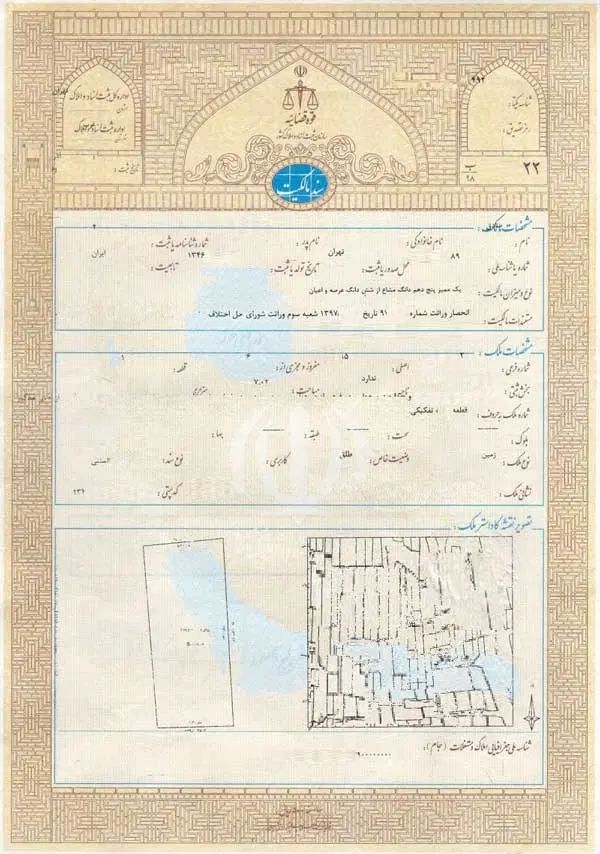 قوه قضائیه
سازمان ثبت اسناد و املاک کشور
اداره کل ثبت اسناد و املاک
استان تهران
تاریخ ثبت :
شناسه یکتا :
رمز تصدیق :
۲۲
ب
۹۸
سند مالکیت
مشخصات مالک :
نام :
نام خانوادگی :
نام پدر :
شماره شناسنامه یا ثبت :
شماره یا شناسه ملی : ۸۹
محل صدور یا ثبت : تهران
تاریخ تولد یا ثبت : ۱۳۴۶
تابعیت : ایران
نوع و میزان مالکیت : یک ممیز پنج دهم دانگ مشاع از شش دانگ عرصه و اعیان
مستندات مالکیت : انحصار وراثت شماره ۹۱ تاریخ ۱۳۹۷ شعبه سوم وراثت شورای حل اختلاف
مشخصات ملک :
شماره فرعی : ۲
اصلی : ۱۵
مفروز و مجزی از : ۶
قطعه : ۱
بخش ثبتی :
ناحیه : ندارد
مساحت : ۷۰۲
مترمربع
شماره ملک به حروف : قطعه ، تفکیکی
بلوک :
سمت :
طبقه :
بها :
نوع ملک : زمین
وضعیت خاص : طلق
کاربری :
نوع سند :
نشانی ملک :
کدپستی : ۲۳۶
تصویر نقشه کاداستر ملک :
شناسه ملی جغرافیایی املاک و مستغلات (جام) :